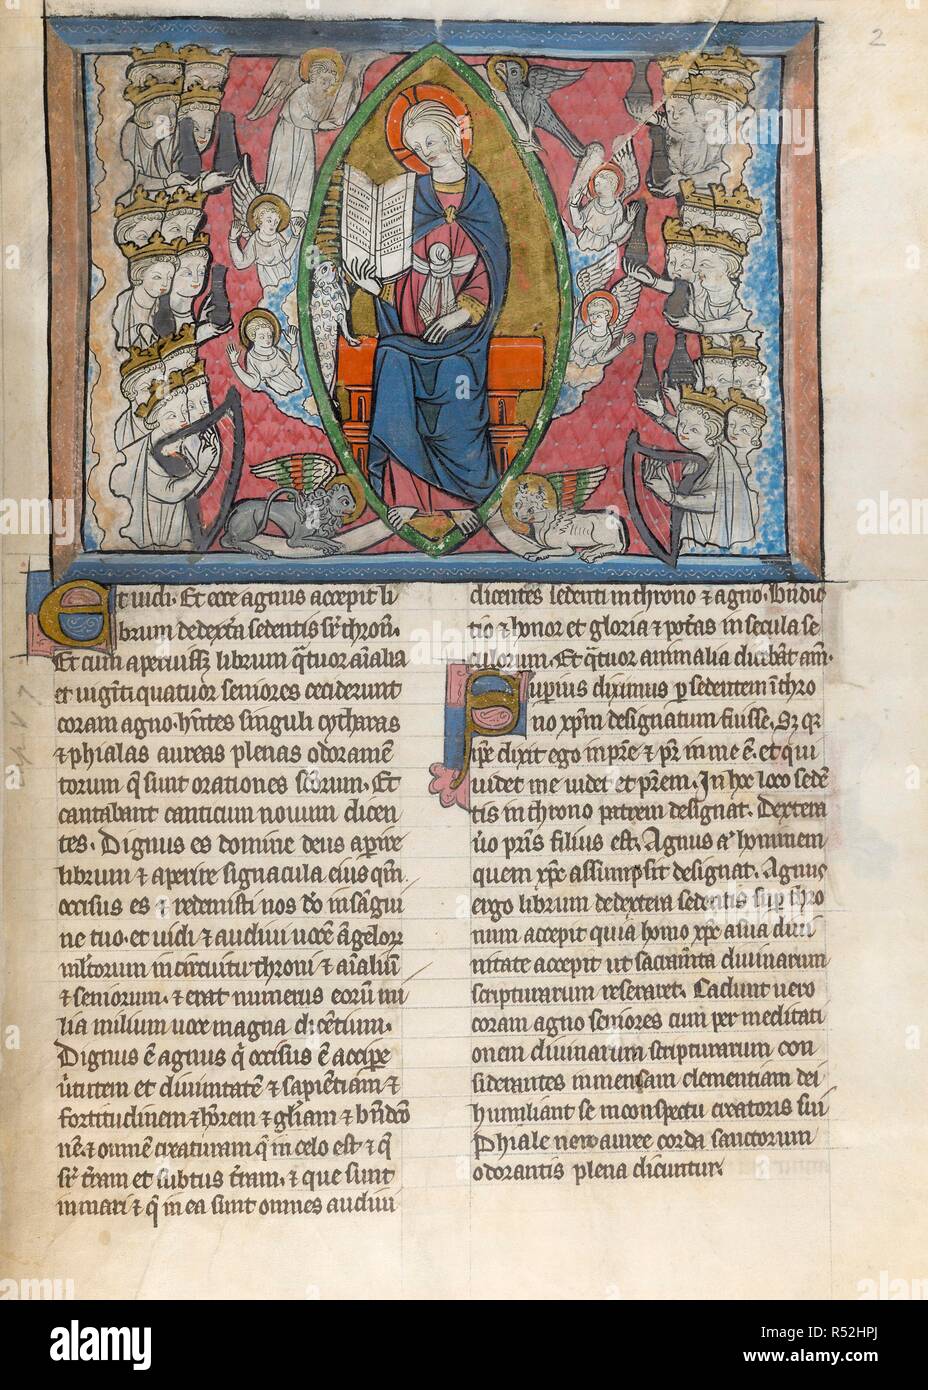 2
Et uidi. Et ecce agnus accepit li
brum de dext̄a sedentis sr̄ thron̄.
Et cum aperuiss& librum q̄tuor aīalia
et uigīti quatuor seniores ceciderunt
coram agno. hn̄tes singuli cytharas
& phialas aureas plenas odoramē
torum q̄ sunt orationes sc̄orum. Et
cantabant canticum nouum dicen
tes. Dignus es domine deus apīre
librum & aperire signacula eius qm̄.
occisus es & redemisti nos dō in sāgui
ne tuo. et uidi & audiui uocē āgelorꝝ
mltorum in circuitu throni & aīaliū
& seniorum. & erat numerus eorū mi
lia milium uoce magna dicētium.
Dignus ē agnus q̄ occisus ē accipe
uītutem et diuinitatē & sapiētiam &
fortitudinem & hōrem & glīam & bn̄dc̄o
nē. & omnē creaturam q̄ in celo est & q̄
sr̄ t̄ram et subtus t̄ram. & que sunt
in mari & q̄ in ea sunt omnes audiui
dicentes sedenti in throno & agno. bn̄dic
tio & honor et gloria & potās in secula se
culorum. Et q̄tuor animalia dicebāt am̄.
Superius diximus p̄ sedentem ī thro
no xp̄m designatum fuisse. Sꝫ qr̄
ip̄e dixit ego in pr̄e & pr̄ in me ē. et qui
uidet me uidet et pr̄em. In hoc loco sedē
tis in throno patrem designat. Dextera
u̾o pr̄is filius est. Agnus a͞t hominem
quem xp̄c assumpsit designat. Agnus
ergo librum de dextera sedentis sup̄ thro
num accepit quia homo xp̄c a sua diui
nitate accepit ut sacram̄ta diuinarum
scripturarum reseraret. Cadunt uero
coram agno seniores cum per meditati
onem diuinarum scripturarum con
siderantes inmensam clementiam dei
humiliant se in conspectu creatoris sui
Phiale uero auree corda sanctorum
odorantis plena dicuntur.
alamy
Image ID: R52HPJ
www.alamy.com